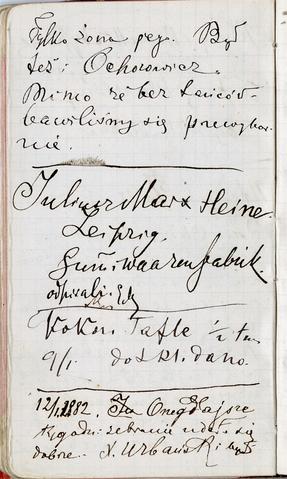 Tylko żona jego. Był
też i Ochorowicz.
Mimo że bez tańców
bawiliśmy się przewybor-
nie.
Julius Marx Heine
Leipzig
Gummiwaarenfabrik.
odpisali
Kokon Tafle ½
9/1. dano.
12/1.1882. Onegdajsze
tygodn. zebranie udało się
dobrze. N. Urbański i